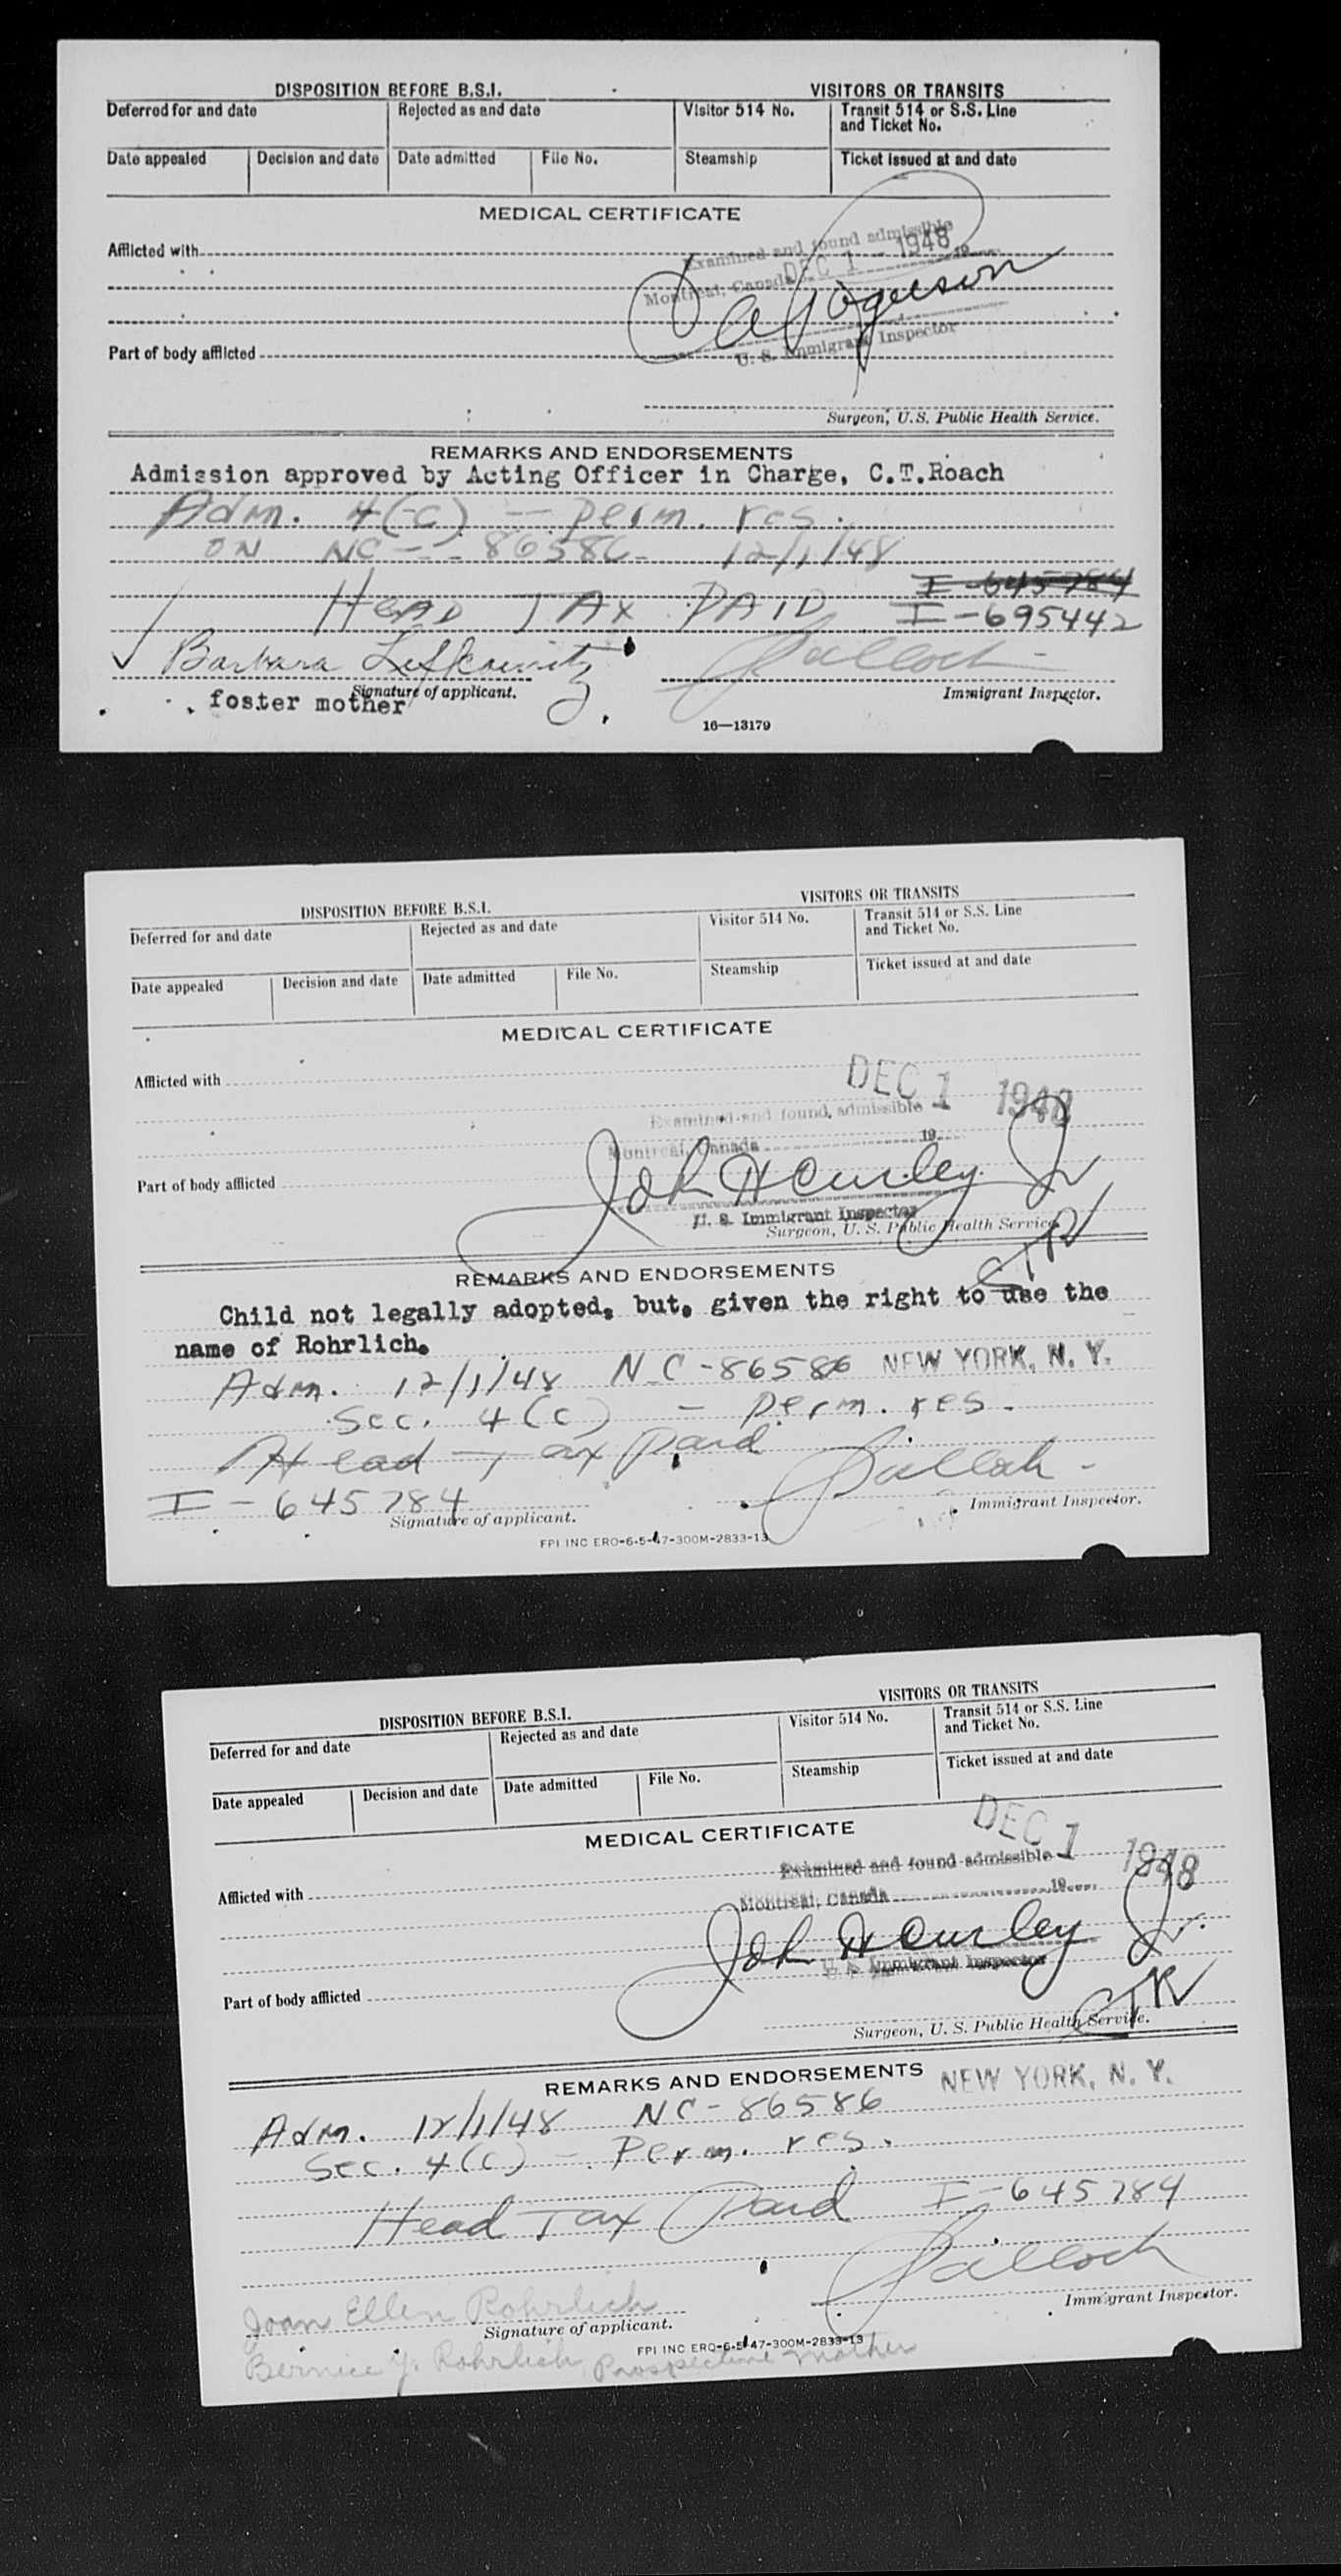 DISPOSITION BEFORE B.S.I. VISITORS OR TRANSITS
Deferred for and date Rejected as and date Visitor 514 No. Transit 514 or S.S. Line
and Ticket No.
Date appealed Decision and date Date admitted File No. Steamship Ticket issued at and date
MEDICAL CERTIFICATE
Afflicted with
Examined and found admissible
Montreal, Canada DEC 1 - 1948 19
U. S. Immigrant Inspector
Part of body afflicted
Surgeon, U.S. Public Health Service.
REMARKS AND ENDORSEMENTS
Admission approved by Acting Officer in Charge, C.T.Roach
Adm. 4(c) — perm. res.
ON NC - 86586 12/1/48
I-645784
HEAD TAX PAID I-695442
Barbara Lefkowitz
Signature of applicant. Immigrant Inspector.
foster mother
16—13179
DISPOSITION BEFORE B.S.I. VISITORS OR TRANSITS
Deferred for and date Rejected as and date Visitor 514 No. Transit 514 or S.S. Line
and Ticket No.
Date appealed Decision and date Date admitted File No. Steamship Ticket issued at and date
MEDICAL CERTIFICATE
Afflicted with
DEC 1 1948
Examined and found admissible
Montreal, Canada 19
Part of body afflicted
John H Curley Jr
U. S. Immigrant Inspector
Surgeon, U. S. Public Health Service.
CTR
REMARKS AND ENDORSEMENTS
Child not legally adopted, but, given the right to use the
name of Rohrlich.
Adm. 12/1/48 NC-86586 NEW YORK, N. Y.
Sec. 4(c) - perm. res.
Head Tax paid
I-645784
Signature of applicant. Immigrant Inspector.
FPI INC ERO-6-5-47-300M-2833-13
DISPOSITION BEFORE B.S.I. VISITORS OR TRANSITS
Deferred for and date Rejected as and date Visitor 514 No. Transit 514 or S.S. Line
and Ticket No.
Date appealed Decision and date Date admitted File No. Steamship Ticket issued at and date
MEDICAL CERTIFICATE
DEC 1 1948
Examined and found admissible
Afflicted with
Montreal, Canada 19
John H Curley Jr.
U. S. Immigrant Inspector
Part of body afflicted
CTR
Surgeon, U. S. Public Health Service.
REMARKS AND ENDORSEMENTS NEW YORK, N. Y.
Adm. 12/1/48 NC-86586
Sec. 4(c) - Perm. res.
Head Tax Paid I-645784
Joan Ellen Rohrlich
Signature of applicant. Immigrant Inspector.
FPI INC ERO-6-5-47-300M-2833-13
Bernice Y. Rohrlich, Prospective Mother